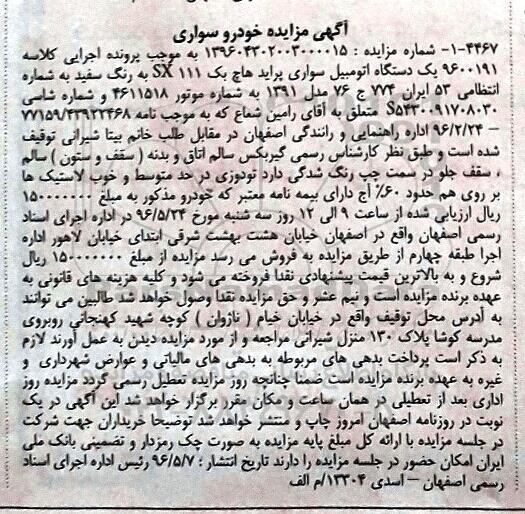 آگهی مزایده خودرو سواری
۱-۴۴۶۷- شماره مزایده : ۱۳۹۶۰۴۳۰۲۰۰۳۰۰۰۰۱۵ به موجب پرونده اجرایی کلاسه
۹۶۰۰۱۹۱ یک دستگاه اتومبیل سواری پراید هاچ بک ۱۱۱ SX به رنگ سفید به شماره
انتظامی ۵۳ ایران ۷۷۴ ج ۷۶ مدل ۱۳۹۱ به شماره موتور ۴۶۱۱۵۱۸ و شماره شاسی
S۵۴۳۰۰۹۱۷۰۸۰۳۰ متعلق به آقای رامین شعاع که به موجب نامه ۷۷۱۵۹/۴۳۹۲۲۴۶۸
– ۹۶/۲/۲۴ اداره راهنمایی و رانندگی اصفهان در مقابل طلب خانم بیتا شیرانی توقیف
شده است و طبق نظر کارشناس رسمی گیربکس سالم اتاق و بدنه ( سقف و ستون ) سالم
، سقف جلو در سمت چپ رنگ شدگی دارد تودوزی در حد متوسط و خوب لاستیک ها
بر روی هم حدود ۶۰٪ آج دارای بیمه نامه معتبر که خودرو مذکور به مبلغ ۱۵۰۰۰۰۰۰۰
ریال ارزیابی شده از ساعت ۹ الی ۱۲ روز سه شنبه مورخ ۹۶/۵/۲۴ در اداره اجرای اسناد
رسمی اصفهان واقع در اصفهان خیابان هشت بهشت شرقی ابتدای خیابان لاهور اداره
اجرا طبقه چهارم از طریق مزایده به فروش می رسد مزایده از مبلغ ۱۵۰۰۰۰۰۰۰ ریال
شروع و به بالاترین قیمت پیشنهادی نقدا فروخته می شود و کلیه هزینه های قانونی به
عهده برنده مزایده است و نیم عشر و حق مزایده نقدا وصول خواهد شد طالبین می توانند
به آدرس محل توقیف واقع در خیابان خیام ( ناژوان ) کوچه شهید کهنجانی روبروی
مدرسه کوشا پلاک ۱۳۰ منزل شیرانی مراجعه و از مورد مزایده دیدن به عمل آورند لازم
به ذکر است پرداخت بدهی های مربوطه به بدهی های مالیاتی و عوارض شهرداری و
غیره به عهده برنده مزایده است ضمنا چنانچه روز مزایده تعطیل رسمی گردد مزایده روز
اداری بعد از تعطیلی در همان ساعت و مکان مقرر برگزار خواهد شد این آگهی در یک
نوبت در روزنامه اصفهان امروز چاپ و منتشر خواهد شد توضیحا خریداران جهت شرکت
در جلسه مزایده با ارائه کل مبلغ پایه مزایده به صورت چک رمزدار و تضمینی بانک ملی
ایران امکان حضور در جلسه مزایده را دارند تاریخ انتشار : ۹۶/۵/۷ رئیس اداره اجرای اسناد
رسمی اصفهان – اسدی ۱۳۳۰۴/م الف